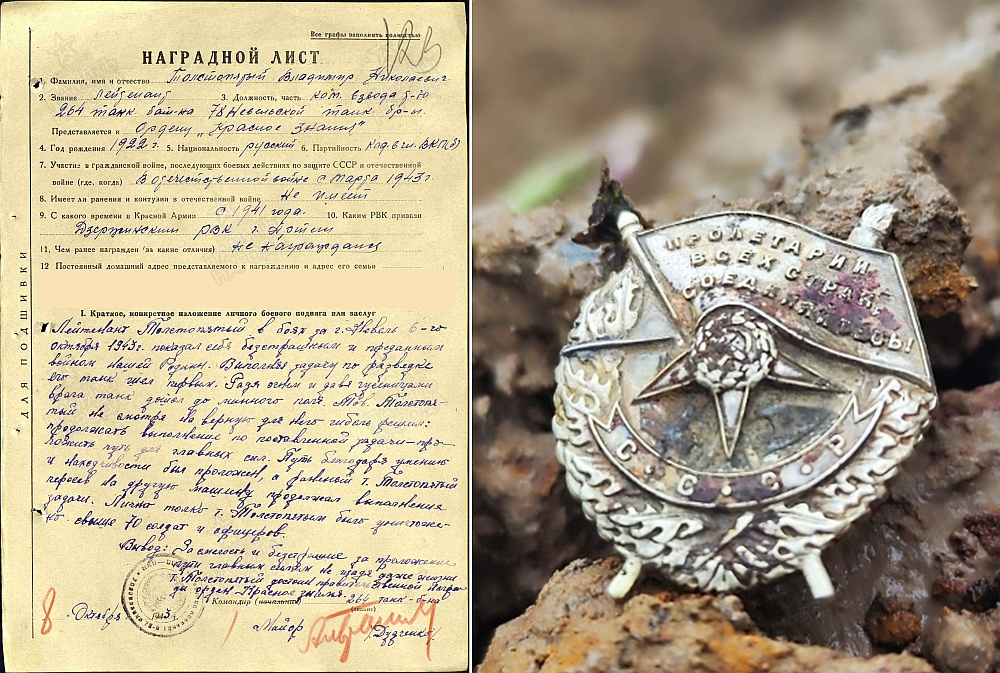 Все графы заполнять полностью
НАГРАДНОЙ ЛИСТ
1. Фамилия, имя и отчество Толстопятый Владимир Николаевич
2. Звание Лейтенант 3. Должность, часть ком. взвода Т-70
264 танк. бат-на 78 Невельской танк. бр-ы.
Представляется к Ордену „Красное Знамя"
4. Год рождения 1922 г. 5. Национальность русский 6. Партийность Канд. в чл. ВКП(б)
7. Участие в гражданской войне, последующих боевых действиях по защите СССР и отечественной
войне (где, когда) В отечественной войне с марта 1943 г.
8. Имеет ли ранения и контузии в отечественной войне Не имеет
9. С какого времени в Красной Армии с 1941 года. 10. Каким РВК призван
Дзержинским РВК г.
11. Чем ранее награжден (за какие отличия) Не награжден
12 Постоянный домашний адрес представляемого к награждению и адрес его семьи
I. Краткое, конкретное изложение личного боевого подвига или заслуг
Лейтенант Толстопятый в боях за г. Невель 6-го
октября 1943 г. показал себя бесстрашным и преданным
воином нашей Родины. Выполняя задачу по разведке
его танк шел первым. Ведя огонь и давя гусеницами
врага танк дошел до минного поля. Тов. Толстопя-
тый не смотря на верную для него гибель решил:
продолжать выполнение по поставленной задачи - про-
ложить путь для главных сил. Путь благодаря умению
и находчивости был проложен, а т. Толстопятый
пересев на другую машину продолжал выполнение
задачи. Лично только т. Толстопятым было уничтоже-
но свыше 70 солдат и офицеров.
Вывод: За смелость и бесстрашие за проложение
пути главным силам не щадя даже жизни
т. Толстопятый достоин правительственной награ-
ды орден Красное знамя.
Командир (начальник) 264 танк. б-на
(звание)
8 Октября 1943
Майор /Дудченко/
ДЛЯ ПОДШИВКИ
ПРОЛЕТАРИИ
ВСЕХ СТРАН
СОЕДИНЯЙТЕСЬ!
С.С.С.Р